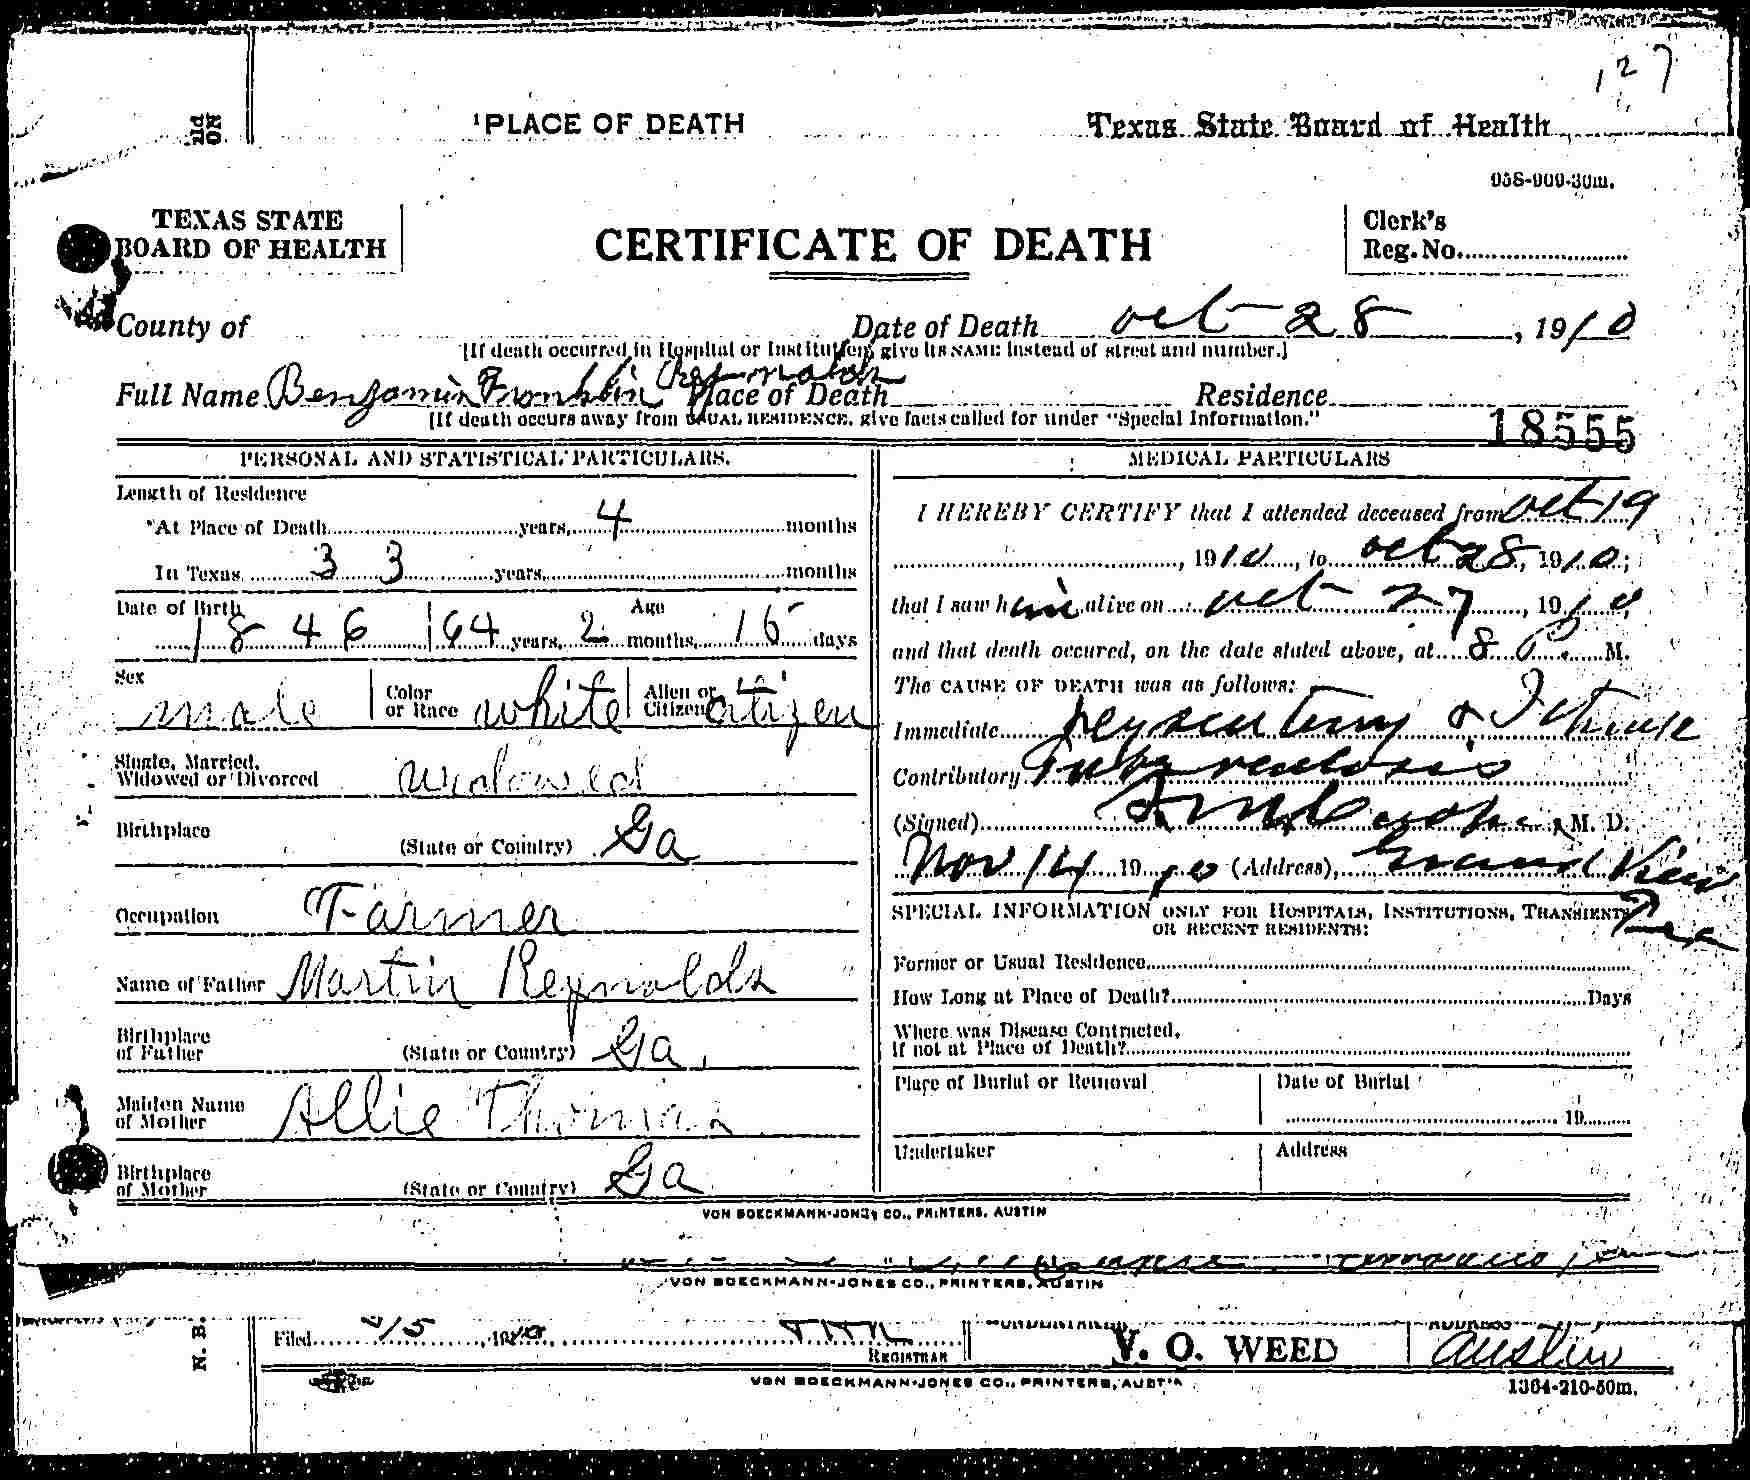 127
1 PLACE OF DEATH Texas State Board of Health
058-909-30m.
TEXAS STATE
BOARD OF HEALTH
CERTIFICATE OF DEATH
Clerk's
Reg. No.
County of Date of Death oct 28, 1910
[If death occurred in Hospital or Institution, give its NAME instead of street and number.]
Full Name Benjamin Franklin Reynolds Place of Death Residence
[If death occurs away from USUAL RESIDENCE, give facts called for under "Special Information."
18555
PERSONAL AND STATISTICAL PARTICULARS.
Length of Residence
*At Place of Death years, 4 months
In Texas 33 years, months
Date of Birth Age
1846 64 years, 2 months, 15 days
Sex male Color or Race white Alien or Citizen citizen
Single, Married,
Widowed or Divorced widowed
Birthplace (State or Country) Ga
Occupation Farmer
Name of Father Martin Reynolds
Birthplace
of Father (State or Country) Ga.
Maiden Name
of Mother Allie Thomas
Birthplace
of Mother (State or Country) Ga
MEDICAL PARTICULARS
I HEREBY CERTIFY that I attended deceased from oct 19
, 1910, to oct 28, 1910;
that I saw him alive on oct 27, 1910,
and that death occured, on the date stated above, at 8 P. M.
The CAUSE OF DEATH was as follows:
Immediate
Contributory Tuberculosis
(Signed) M. D.
Nov 14 1910 (Address), Grand View
Tex
SPECIAL INFORMATION ONLY FOR HOSPITALS, INSTITUTIONS, TRANSIENTS
OR RECENT RESIDENTS:
Former or Usual Residence
How Long at Place of Death? Days
Where was Disease Contracted,
If not at Place of Death?
Place of Burial or Removal Date of Burial
19
Undertaker Address
VON BOECKMANN-JONES CO., PRINTERS, AUSTIN
VON BOECKMANN-JONES CO., PRINTERS, AUSTIN
N. B.
Filed REGISTRAR
UNDERTAKER
V. O. WEED
ADDRESS
Austin
VON BOECKMANN-JONES CO., PRINTERS, AUSTIN
1364-210-50m.